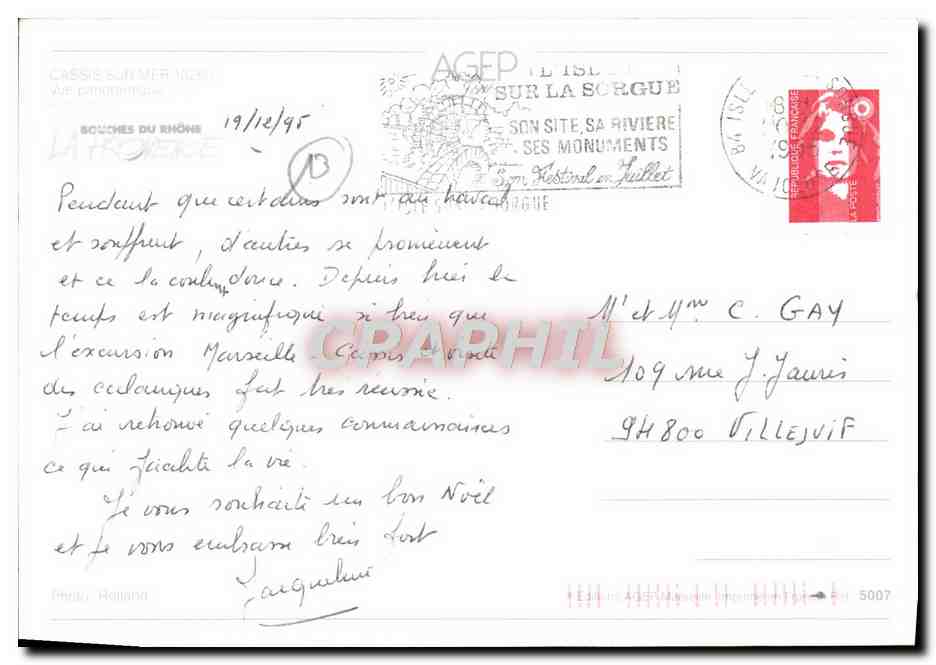 AGEP
CASSIS SUR MER
Vue panoramique
BOUCHES DU RHÔNE
LA PROVENCE
19/12/95
13
L'ISLE
SUR LA SORGUE
SON SITE, SA RIVIERE
SES MONUMENTS
Son Festival en Juillet
84 ISLE
REPUBLIQUE FRANÇAISE
LA POSTE
Pendant que certains sont au travail
et souffrent, d'autres se promènent
et ce la couleur douce. Depuis hier le
temps est magnifique si bien que
l'excursion Marseille - Cassis et visite
des calanques fut très réussie.
J'ai retrouvé quelques connaissances
ce qui facilite la vie.
Je vous souhaite un bon Noël
et je vous embrasse bien fort
Jacqueline
Mr et Mme C. GAY
109 rue J. Jaurès
94800 VILLEJUIF
CPAPHIL
Photo : Rolland
Editions AGEP Marseille
5007